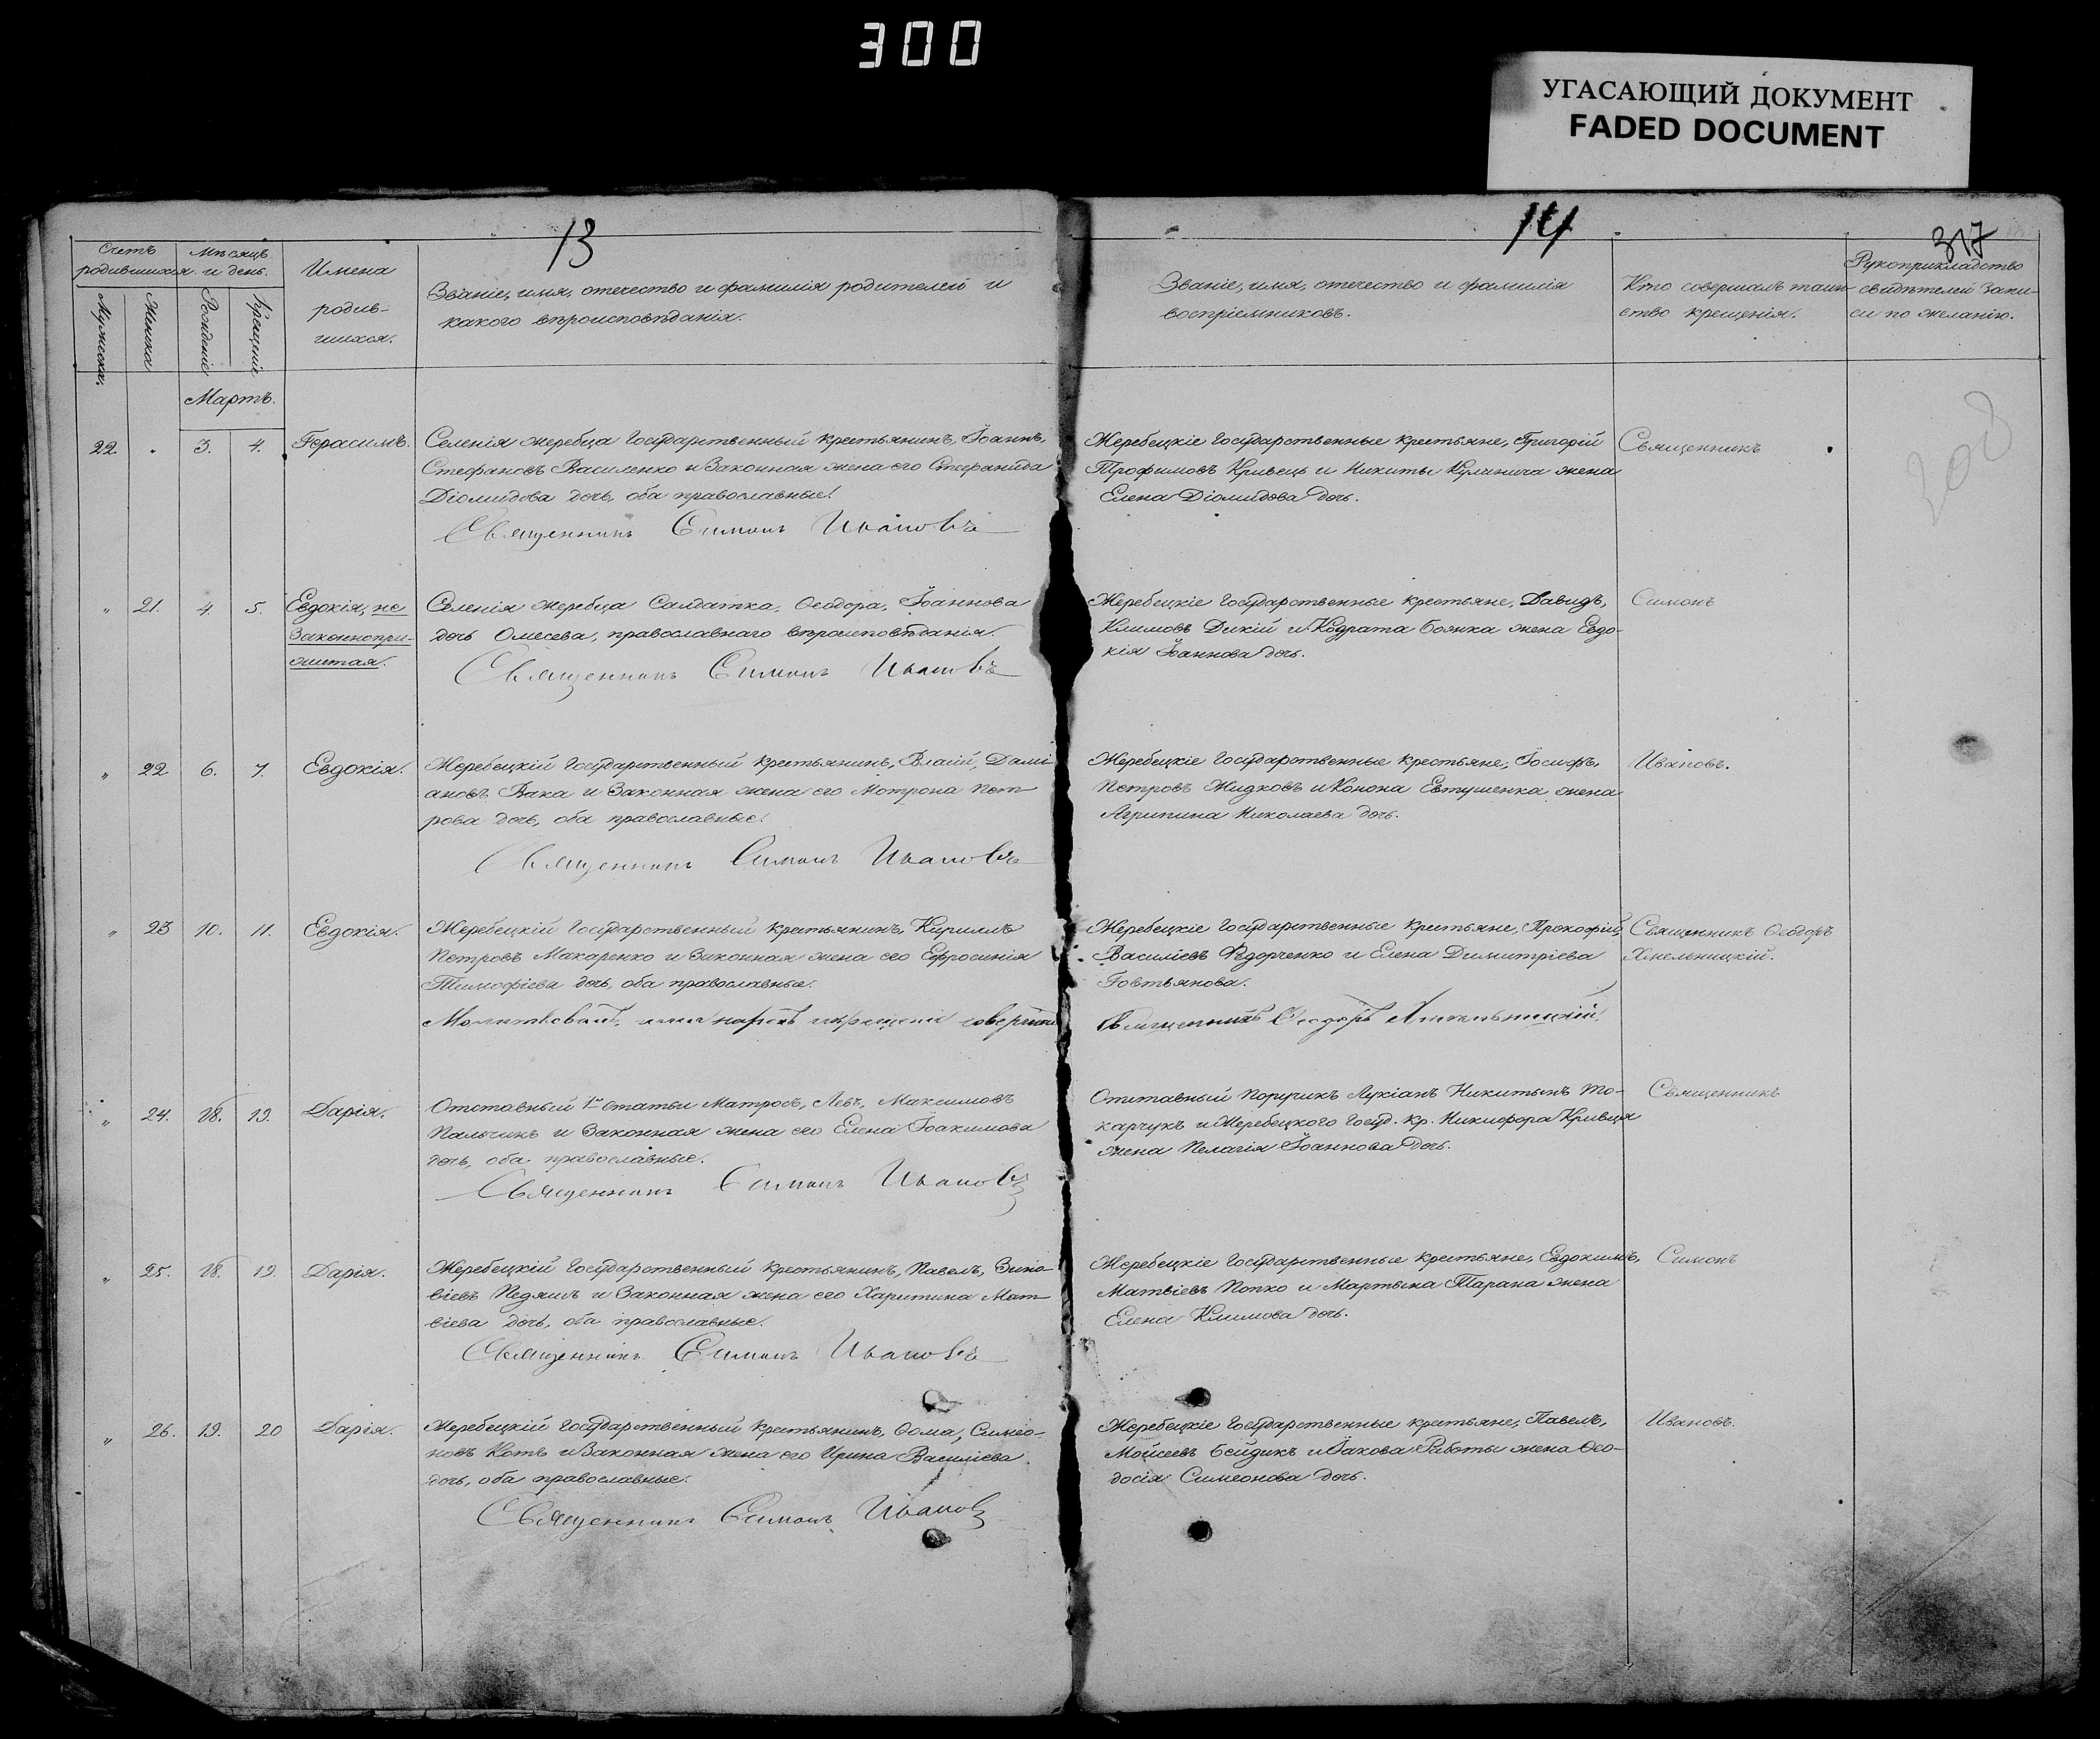 300
УГАСАЮЩИЙ ДОКУМЕНТ
FADED DOCUMENT
13
14
317
208
Счетъ родившихся.
Мѣсяцъ и день.
Мужеска.
Женска
Рожденіе
Крещеніе
Имена
родив-
шихся.
Званіе, имя, отечество и фамилія родителей и
какого вѣроисповѣданія.
Званіе, имя, отечество и фамилія
воспріемниковъ.
Кто совершалъ таин-
ство крещенія.
Рукоприкладство
свидѣтелей запи-
си по желанію.
Мартъ.
22. 3. 4. Герасимъ.
Селенія Жеребца Государственный крестьянинъ, Іоаннъ,
Стефановъ Василенко и Законная жена его Стефанида
Діомидова дочь, оба православные.
Священникъ Симонъ Ивановъ
Жеребецкіе Государственные крестьяне, Григорій
Трофимовъ Кривець и Никиты Кулинича жена
Елена Діомидова дочь.
Священникъ
" 21. 4 5. Евдокія, не
Законнопри-
житая.
Селенія Жеребца Салдатка, Ѳеодора, Іоаннова
дочь Омесева, православнаго вѣроисповѣданія.
Священникъ Симонъ Ивановъ
Жеребецкіе Государственные крестьяне, Давидъ,
Климовъ Дикій и Кодрата Боянка жена Евдо-
кія Іоаннова дочь.
Симонъ
" 22 6. 7. Евдокія.
Жеребецкій Государственный крестьянинъ, Власій, Дамі-
ановъ Вака и Законная жена его Мотрона Пет-
рова дочь, оба православные.
Священникъ Симонъ Ивановъ
Жеребецкіе Государственные крестьяне, Іосифъ,
Петровъ Жидковъ и Конона Евтушенка жена
Агрипина Николаева дочь.
Ивановъ.
" 23 10. 11. Евдокія.
Жеребецкій Государственный крестьянинъ, Кириллъ
Петровъ Макаренко и Законная жена его Ефросинія
Тимофіева дочь, оба православные.
Молитвовалъ, имя нарекъ и крещеніе совершилъ
Жеребецкіе Государственные крестьяне, Прокофій,
Василіевъ Федорченко и Елена Димитріева
Говтьянова.
Священникъ Ѳеодоръ Хмельницкій.
Священникъ Ѳеодоръ
Хмельницкій.
" 24. 18. 19. Дарія.
Отставный 1й статьи Матросъ, Левъ, Максимовъ
Пальчинъ и Законная жена его Елена Іоакимова
дочь, оба православные.
Священникъ Симонъ Ивановъ
Отставный поручикъ Лукіанъ Никитинъ То-
карчукъ и Жеребецкого Госуд. Кр. Никифора Кривця
жена Пелагія Іоаннова дочь.
Священникъ
" 25. 18. 19. Дарія.
Жеребецкій Государственный крестьянинъ, Павелъ, Зино-
віевъ Педяшъ и Законная жена его Харитина Мат-
віева дочь, оба православные.
Священникъ Симонъ Ивановъ
Жеребецкіе Государственные крестьяне, Евдокимъ,
Матвіевъ Попко и Мартына Тарана жена
Елена Климова дочь.
Симонъ
" 26. 19. 20 Дарія.
Жеребецкій Государственный крестьянинъ, Ѳома, Симео-
новъ Котъ и Законная жена его Ирина Василіева
дочь, оба православные.
Священникъ Симонъ Ивановъ
Жеребецкіе Государственные крестьяне, Павелъ,
Мойсеевъ Бейдикъ и Іакова Работы жена Ѳео-
досія Симеонова дочь.
Ивановъ.